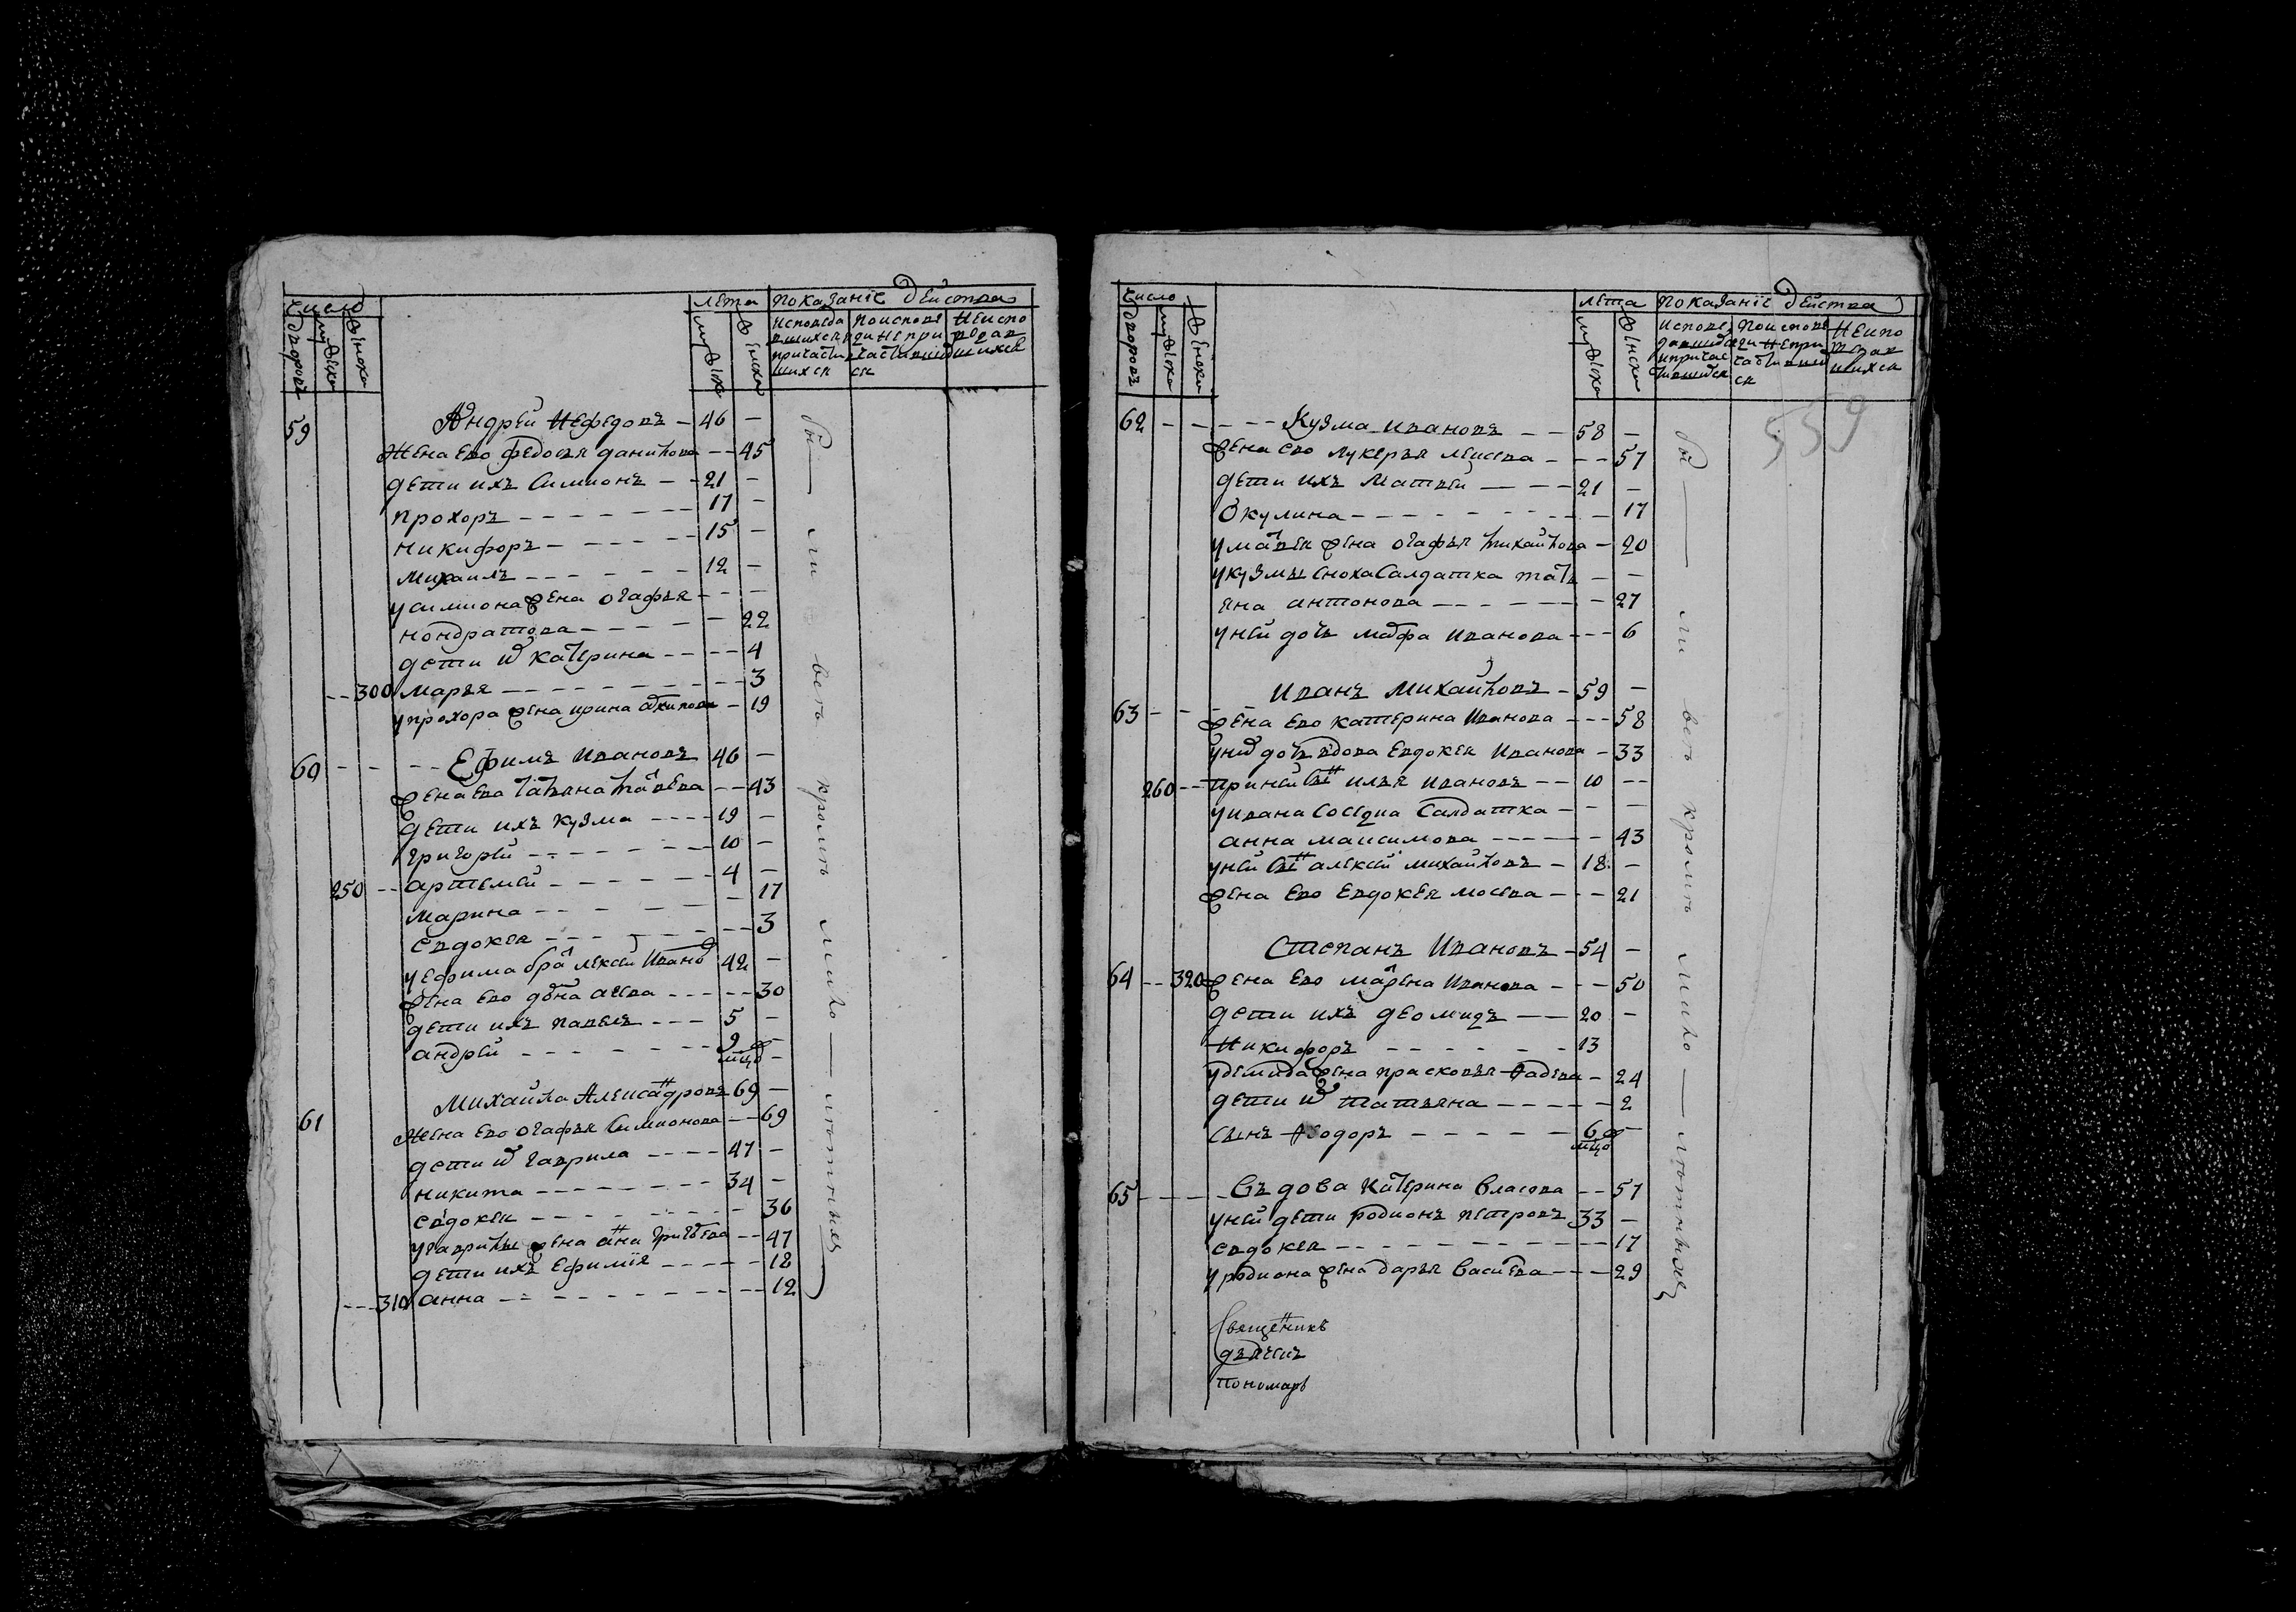 число
дворовъ
мужска
женска
лета
мужска
женска
показанiе действа
исповеда
вшихся и
причасти
вшихся
по испове
ди непри
частивших
ся
неиспо
ведав
шихся
59 Андрей Нефедовъ - 46 -
жена ево федосья данилова - - 45
дети ихъ Симионъ - - 21 -
прохоръ - - - - - - - 17 -
никифоръ - - - - - - 15 -
михаилъ - - - - - - 12 -
у симиона жена огафья - - -
кондратова - - - - - 22
дети их катерина - - - - 4
- - 300 марья - - - - - - - - - - 3
у прохора жена ирина архипова - 19
60 - - - - Ефимъ Ивановъ 46 -
жена ево татьяна матвева - - 43
дети ихъ кузма - - - - 19 -
григорей - - - - - - - 10 -
250 - - артемей - - - - - - 4 -
марина - - - - - - 17
евдокея - - - - - - - - 3
у ефима бра алексей Ивано 42 -
жена ево - - - - - 30
дети ихъ павелъ - - - 5 -
андрей - - - - - - - 9 -
мцо
61 Михаила Александровъ 69 -
жена ево огафья Симионова - - 69
дети их гаврила - - - - 47 -
никита - - - - - - - - 34 -
евдокея - - - - - - - - 36
у гаврилы жена анна григорева - - 47
дети ихъ Ефимiя - - - - - 18
- - - 310 анна - - - - - - - - - - 12
бы — ли веть кромъ мило — лютныя
число
дворовъ
мужска
женска
лета
мужска
женска
показанiе действа
испове
давшися
и причас
тившися
по испове
ди непри
частивши
ся
неиспо
ведав
шихся
559
62 - - - - - Кузма Ивановъ - - 58 -
жена ево лукерья - - - 57
дети ихъ Матвей - - - - 21 -
Окулина - - - - - - - - - 17
у матвея жена огафья михайлова - 20
у кузмы сноха Салдатка тать - -
яна антонова - - - - - - - 27
у ней дочь марфа Иванова - - - 6
Иванъ Михайловъ - 59 -
63 - - - жена ево катерина Иванова - - - 58
у них дочь вдова Евдокея Иванова - 33
260 - - при ней сынъ илья Ивановъ - - 10 - -
у ивана соседка Салдатка - - -
анна максимова - - - - - - 43
у ней сынъ алексей михайловъ - 18 -
жена ево Евдокея мосева - - - 21
Степанъ Ивановъ - 54 -
64 - - 320 жена ево марена Иванова - - - 50
дети ихъ деомидъ - - 20 -
Никифоръ - - - - - - - 13
у демида жена прасковья фадева - 24
дети их татьяна - - - - - 2
сынъ феодоръ - - - - - 6 -
мцо
65 - - - - Въдова катерина власова - - 57
у ней дети родионъ петровъ 33 -
евдокея - - - - - - - - - 17
у родиона жена дарья васильева - - - 29
бы — ли веть кромъ мило — лютныя
Священикъ
дьячекъ
пономарь